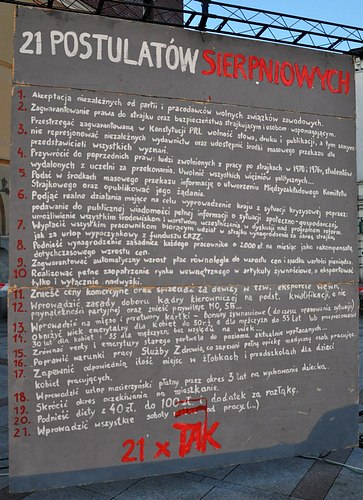 21 POSTULATÓW SIERPNIOWYCH
1. Akceptacja niezależnych od partii i pracodawców wolnych związków zawodowych.
2. Zagwarantowanie prawa do strajku oraz bezpieczeństwa strajkującym i osobom wspomagającym.
3. Przestrzegać zagwarantowaną w Konstytucji PRL wolność słowa, druku i publikacji, a tym samym
nie represjonować niezależnych wydawnictw oraz udostępnić środki masowego przekazu dla
przedstawicieli wszystkich wyznań.
4. Przywrócić do poprzednich praw: ludzi zwolnionych z pracy po strajkach w 1970 i 1976, studentów
wydalonych z uczelni za przekonania. Uwolnić wszystkich więźniów politycznych...
5. Podać w środkach masowego przekazu informację o utworzeniu Międzyzakładowego Komitetu
Strajkowego oraz opublikować jego żądania.
6. Podjąć realne działania mające na celu wyprowadzenie kraju z sytuacji kryzysowej poprzez:
podawanie do publicznej wiadomości pełnej informacji o sytuacji społeczno-gospodarczej,
umożliwienie wszystkim środowiskom i warstwom uczestniczenia w dyskusji nad programem reform.
7. Wypłacić wszystkim pracownikom biorącym udział w strajku wynagrodzenie za okres strajku,
jak za urlop wypoczynkowy z funduszu CRZZ.
8. Podnieść wynagrodzenie zasadnicze każdego pracownika o 2.000 zł na miesiąc jako rekompensatę
dotychczasowego wzrostu cen.
9. Zagwarantować automatyczny wzrost płac równolegle do wzrostu cen i spadku wartości pieniądza.
10. Realizować pełne zaopatrzenie rynku wewnętrznego w artykuły żywnościowe, a eksportować
tylko i wyłącznie nadwyżki.
11. Znieść ceny komercyjne oraz sprzedaż za dewizy w tzw. eksporcie wewn.
12. Wprowadzić zasady doboru kadry kierowniczej na podst. kwalifikacji, a nie
przynależności partyjnej oraz znieść przywileje MO, SB...
13. Wprowadzić na mięso i przetwory kartki - bony żywnościowe (do czasu opanowania sytuacji)
14. Obniżyć wiek emerytalny dla kobiet do 50 l. a dla mężczyzn do 55 lat lub przepracowane
30 lat dla kobiet i 35 dla mężczyzn bez względu na wiek...
15. Zrównać renty i emerytury starego portfela do poziomu aktualnie wypłacanych...
16. Poprawić warunki pracy Służby Zdrowia, co zapewni pełną opiekę medyczną osób pracując.
17. Zapewnić odpowiednią ilość miejsc w żłobkach i przedszkolach dla dzieci
kobiet pracujących.
18. Wprowadzić urlop macierzyński płatny przez okres 3 lat na wychowanie dziecka.
19. Skrócić okres oczekiwania na mieszkanie.
20. Podnieść diety z 40 zł. do 100 zł. i dodatek za rozłąkę.
21. Wprowadzić wszystkie soboty od pracy. (...)
21 x TAK